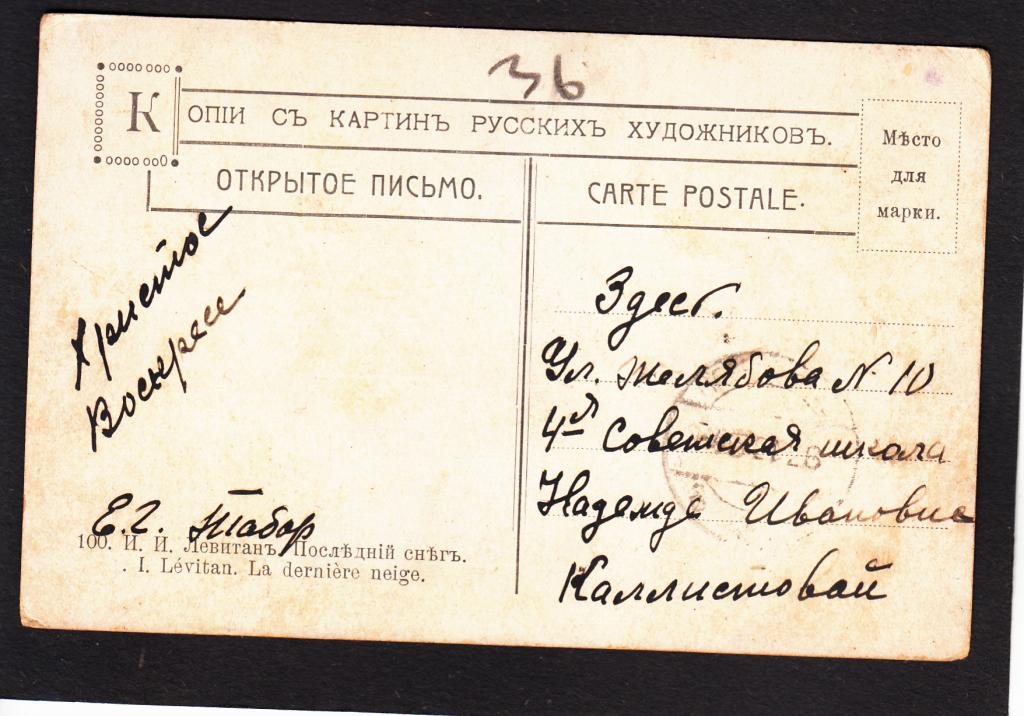 36
КОПІИ СЪ КАРТИНЪ РУССКИХЪ ХУДОЖНИКОВЪ.
Мѣсто
для
марки.
ОТКРЫТОЕ ПИСЬМО.
CARTE POSTALE.
Христос
Воскресе
Е.Г. Табор
100. И. И. Левитанъ. Послѣдній снѣгъ.
I. Lévitan. La dernière neige.
Здесь.
Ул. Желябова N 10
4я Советская школа
Надежде Ивановне
Каллистовой